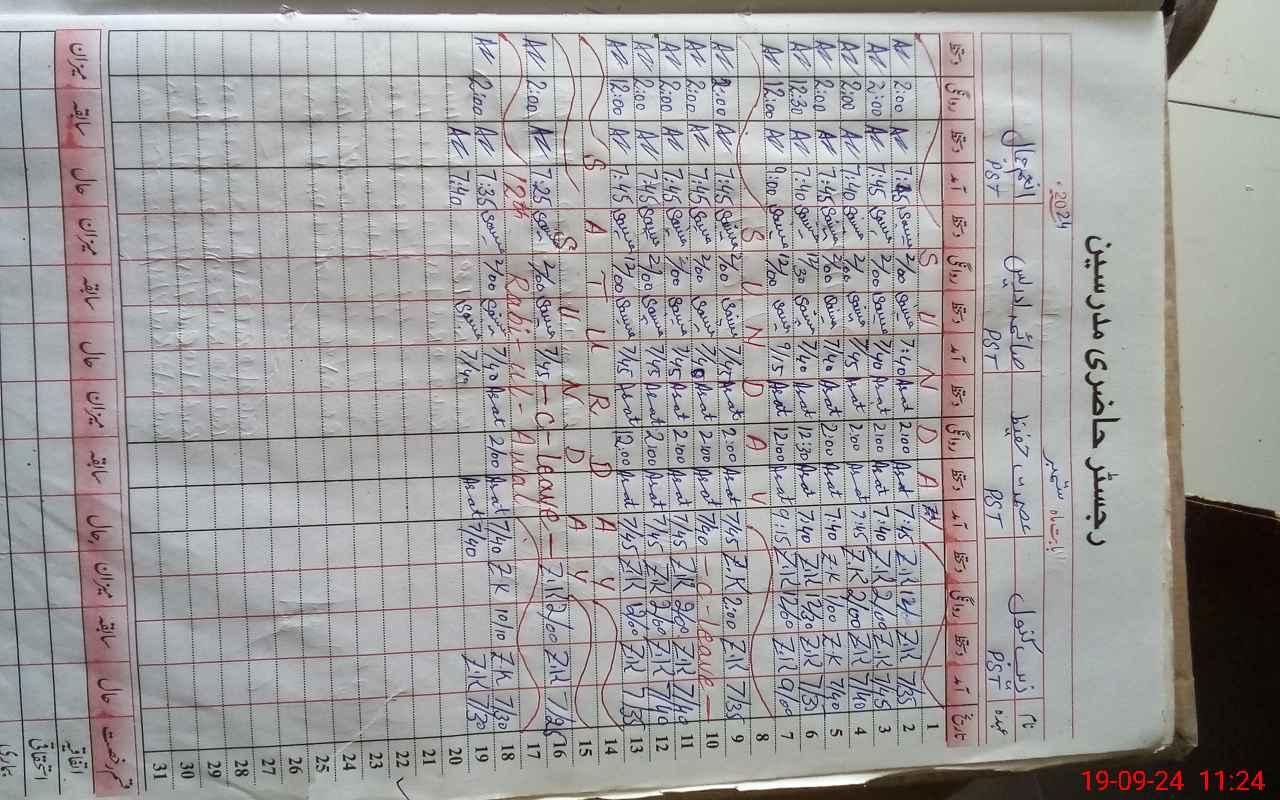 رجسٹر حاضری مدرسین
بابت ماہ ستمبر 2024
نام زینب کنول عصمت حفیظ صائمہ ادریس
عہدہ PST PST PST PST
تاریخ آمد دستخط روانگی دستخط آمد دستخط روانگی دستخط آمد دستخط روانگی دستخط آمد دستخط روانگی دستخط
S U N D A Y 1
AZ 2:00 AZ Saima 2/00 Saima 7:40 Asat 2:00 Asat 7:45 Z.K Z.K 7/35 2
AZ 2:00 AZ 7:45 Saima 2/00 Saima 7/40 Asat 2:00 Asat 7:40 Z.K 2/00 Z.K 7/45 3
AZ 2:00 AZ 7:40 Saima 2/00 Saima 7/45 Asat 2:00 Asat 7:45 Z.K 2/00 Z.K 7/40 4
AZ 2:00 AZ 7:45 Saima 2/00 Saima 7/40 Asat 2:00 Asat 7:40 Z.K 1/00 Z.K 7/40 5
AZ 12:30 AZ 7:40 Saima 12/30 Saima 7/40 Asat 12:30 Asat 7:40 Z.K 12/30 Z.K 7/30 6
AZ 12:00 AZ 9:00 Saima 12/00 Saima 9/15 Asat 12:00 Asat 9:15 Z.K Z.K 9/00 7
S U N D A Y 8
AZ 2:00 AZ 7:45 Saima 2/00 Saima 7/45 Asat 2:00 Asat 7/45 Z.K 2:00 Z.K 7/35 9
AZ 2:00 AZ 7:45 Saima 2/00 Saima Asat 2:00 Asat 7/40 - C-leave - 10
AZ 2:00 AZ 7:45 Saima 2/00 Saima 7/45 Asat 2:00 Asat 7/45 Z.K 2/00 Z.K 7/40 11
AZ 2:00 AZ 7:45 Saima 2/00 Saima 7/45 Asat 2:00 Asat 7/45 Z.K 2/00 Z.K 7/40 12
AZ 12:00 AZ 7:45 Saima 12/00 Saima 7/45 Asat 12:00 Asat 7/45 Z.K 12/00 Z.K 7/35 13
S A T U R D A Y 14
S U N D A Y 15
AZ 2:00 AZ 7:25 Saima 2/00 Saima 7/45 - C-leave - Z.K 2/00 Z.K 16
12th Rabi-Ul-Awal 17
AZ 2:00 AZ 7:35 Saima 2/00 Saima 7/40 Asat 2/00 Asat 7/40 Z.K 10/10 Z.K 7/30 18
AZ 7:40 Saima 7/40 Asat 7/40 Z.K 7/30 19
20
21
22
23
24
25
26
27
28
29
30
31
قسم رخصت حال سابقہ میزان حال سابقہ میزان حال سابقہ میزان حال سابقہ میزان
اتفاقیہ
استحقاقی
بیماری
19-09-24 11:24